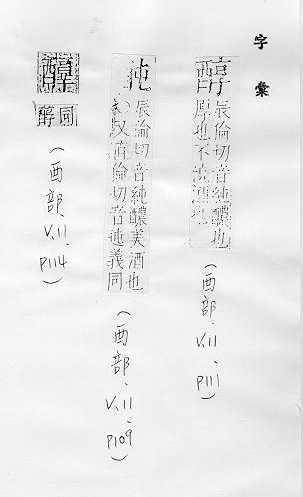 字彙
醇 辰倫切音純醲也
厚也不澆酒也
(酉部、V.11、P111)
辰倫切音純醲美酒也
又徒倫切音迍義同
(酉部、V.11、P109)
同
(酉部、V.11、P114)